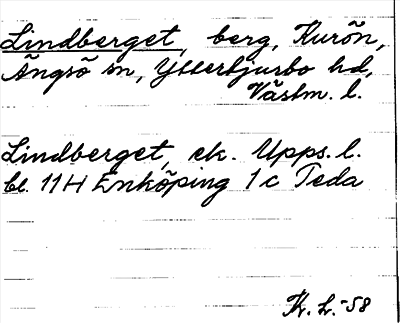 Lindberget, berg, Kurön,
Ängsö sn, Ytterbjurbo hd,
Västm. l.
Lindberget, ek. Upps. l.
bl. 11H Enköping 1c Teda
K. L. -58